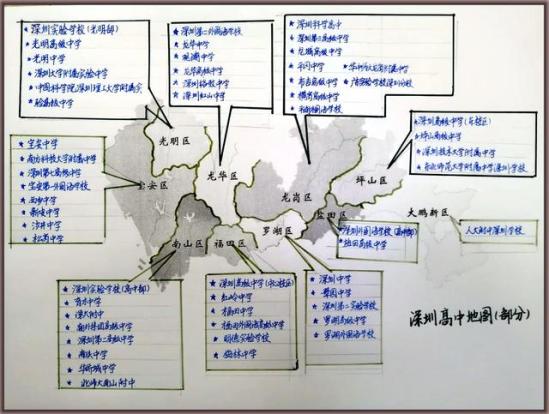 深圳实验学校(光明部)
光明高级中学
光明中学
深圳大学附属实验中学
中国科学院深圳理工大学附属实
高级中学
深圳第二外国语学校
龙华中学
观澜中学
龙华高级中学
深圳格致中学
深圳红山中学
深圳科学高中
深圳第三高级中学
龙城高级中学
平冈中学
华中师大龙岗附属中学
布吉高级中学
清华实验学校
横岗高级中学
光明区
龙华区
宝安区
龙岗区
坪山区
盐田区
大鹏新区
罗湖区
福田区
南山区
宝安中学
南方科技大学附属中学
深圳第七高级中学
宝安第一外国语学校
西乡中学
新安中学
沙井中学
松岗中学
深圳高级中学(东校区)
坪山高级中学
深圳技术大学附属中学
深圳外国语学校(高中部)
盐田高级中学
人大附中深圳学校
深圳实验学校(高中部)
育才中学
深大附中
南山外国语高级中学
深圳第二高级中学
南头中学
华侨城中学
北师大南山附中
深圳高级中学(中心校区)
红岭中学
福田中学
福田外国语高级中学
明德实验学校
梅林中学
深圳中学
翠园中学
深圳第二实验学校
罗湖高级中学
罗湖外国语学校
深圳高中地图(部分)